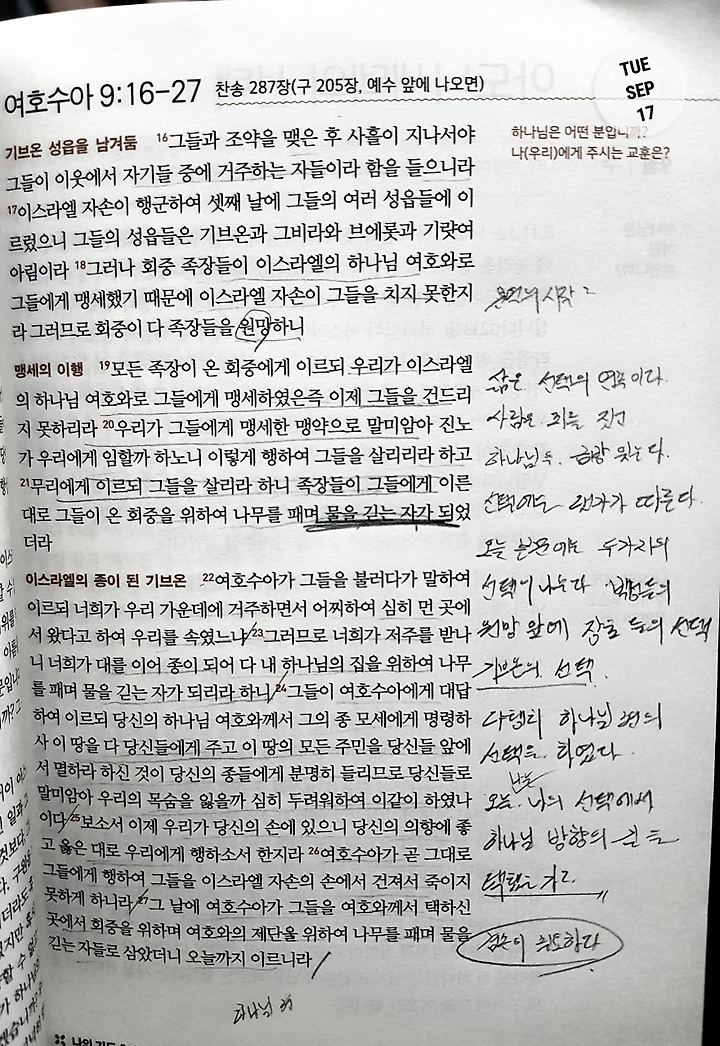 여호수아 9:16-27 찬송 287장(구 205장, 예수 앞에 나오면)
TUE
SEP
17
하나님은 어떤 분입니까?
나(우리)에게 주시는 교훈은?
기브온 성읍을 남겨둠 16그들과 조약을 맺은 후 사흘이 지나서야
그들이 이웃에서 자기들 중에 거주하는 자들이라 함을 들으니라
17이스라엘 자손이 행군하여 셋째 날에 그들의 여러 성읍들에 이
르렀으니 그들의 성읍들은 기브온과 그비라와 브에롯과 기럇여
아림이라 18그러나 회중 족장들이 이스라엘의 하나님 여호와로
그들에게 맹세했기 때문에 이스라엘 자손이 그들을 치지 못한지
라 그러므로 회중이 다 족장들을 원망하니
맹세의 이행 19모든 족장이 온 회중에게 이르되 우리가 이스라엘
의 하나님 여호와로 그들에게 맹세하였은즉 이제 그들을 건드리
지 못하리라 20우리가 그들에게 맹세한 맹약으로 말미암아 진노
가 우리에게 임할까 하노니 이렇게 행하여 그들을 살리리라 하고
21무리에게 이르되 그들을 살리라 하니 족장들이 그들에게 이른
대로 그들이 온 회중을 위하여 나무를 패며 물을 긷는 자가 되었
더라
이스라엘의 종이 된 기브온 22여호수아가 그들을 불러다가 말하여
이르되 너희가 우리 가운데에 거주하면서 어찌하여 심히 먼 곳에
서 왔다고 하여 우리를 속였느냐 23그러므로 너희가 저주를 받나
니 너희가 대를 이어 종이 되어 다 내 하나님의 집을 위하여 나무
를 패며 물을 긷는 자가 되리라 하니 24그들이 여호수아에게 대답
하여 이르되 당신의 하나님 여호와께서 그의 종 모세에게 명령하
사 이 땅을 다 당신들에게 주고 이 땅의 모든 주민을 당신들 앞에
서 멸하라 하신 것이 당신의 종들에게 분명히 들리므로 당신들로
말미암아 우리의 목숨을 잃을까 심히 두려워하여 이같이 하였나
이다 25보소서 이제 우리가 당신의 손에 있으니 당신의 의향에 좋
고 옳은 대로 우리에게 행하소서 한지라 26여호수아가 곧 그대로
그들에게 행하여 그들을 이스라엘 자손의 손에서 건져서 죽이지
못하게 하니라 27그 날에 여호수아가 그들을 여호와께서 택하신
곳에서 회중을 위하며 여호와의 제단을 위하여 나무를 패며 물을
긷는 자들로 삼았더니 오늘까지 이르니라
삶은 선택의 연속이다.
사람은 죄를 짓고
하나님은
선택에는 대가가 따른다.
오늘 본문에는 두가지의
선택이 나온다 백성들의
원망 앞에 장로들의 선택
기브온의 선택.
하나님 편의
선택을 하였다
오늘 나의 선택에서
하나님 방향의
하나님